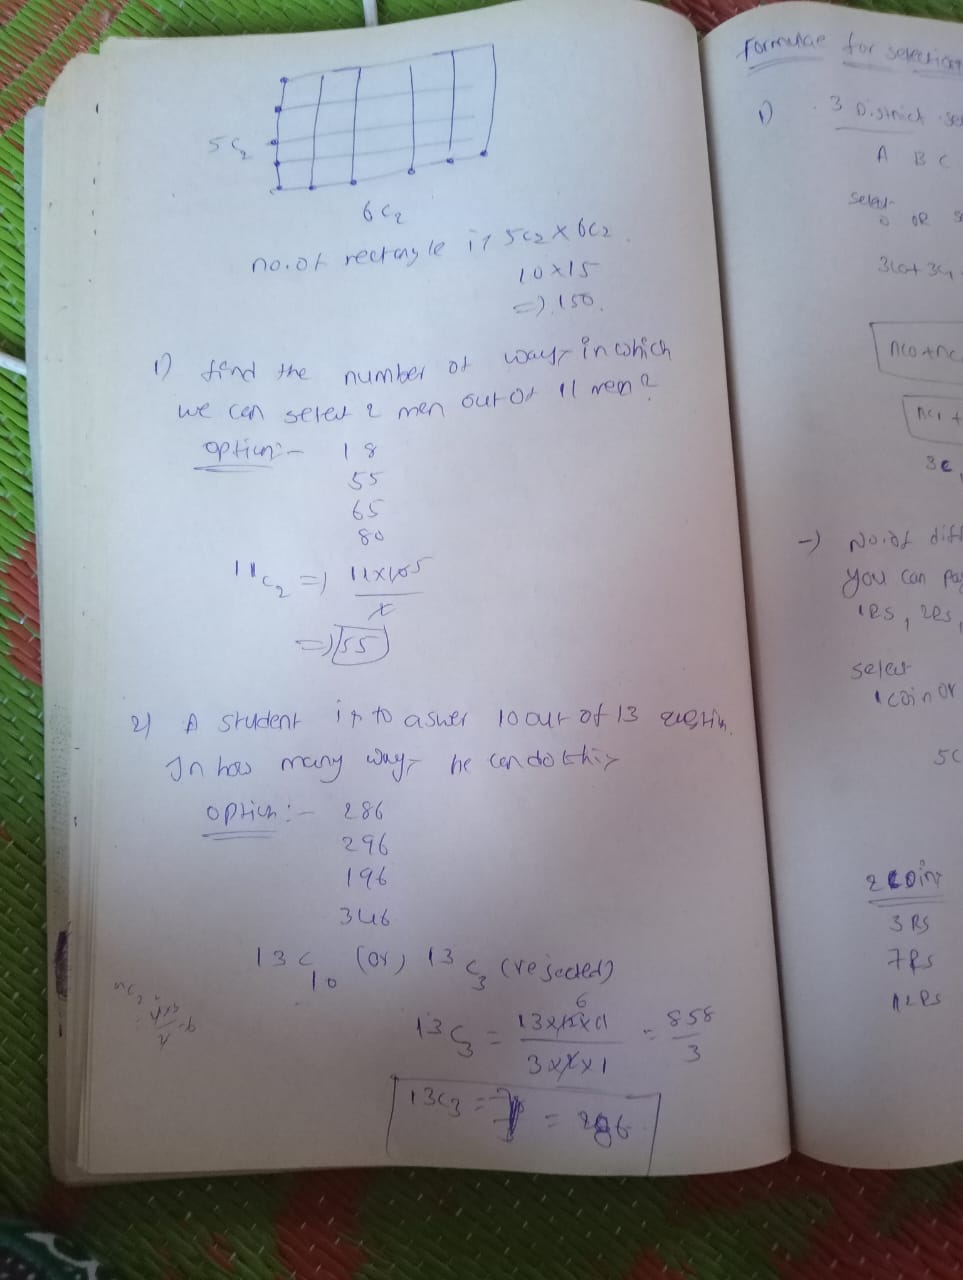 5c2
6c2
no. of rectangle is 5c2 x 6c2
10x15
=) 150.
1) find the number of ways in which
we can select 2 men out of 11 men?
option:- 18
55
65
80
11c2 =) 11x105
2
=) 55
2) A student is to aswer 10 out of 13 questin.
In how many ways he can do this
option:- 286
296
196
346
13c10 (or) 13c3 (rejected)
6
13c3 = 13x12x11 = 858
3x2x1 3
13c3 = = 286
Formulae for selection
1) 3 District
A B C
select
0 OR
3c0+3c1
nc0+nc
nc1+
3c
-) No. of diff
you can pay
1RS, 2RS,
select
1 coin or
5c
2 coins
3 RS
7 RS
12 RS